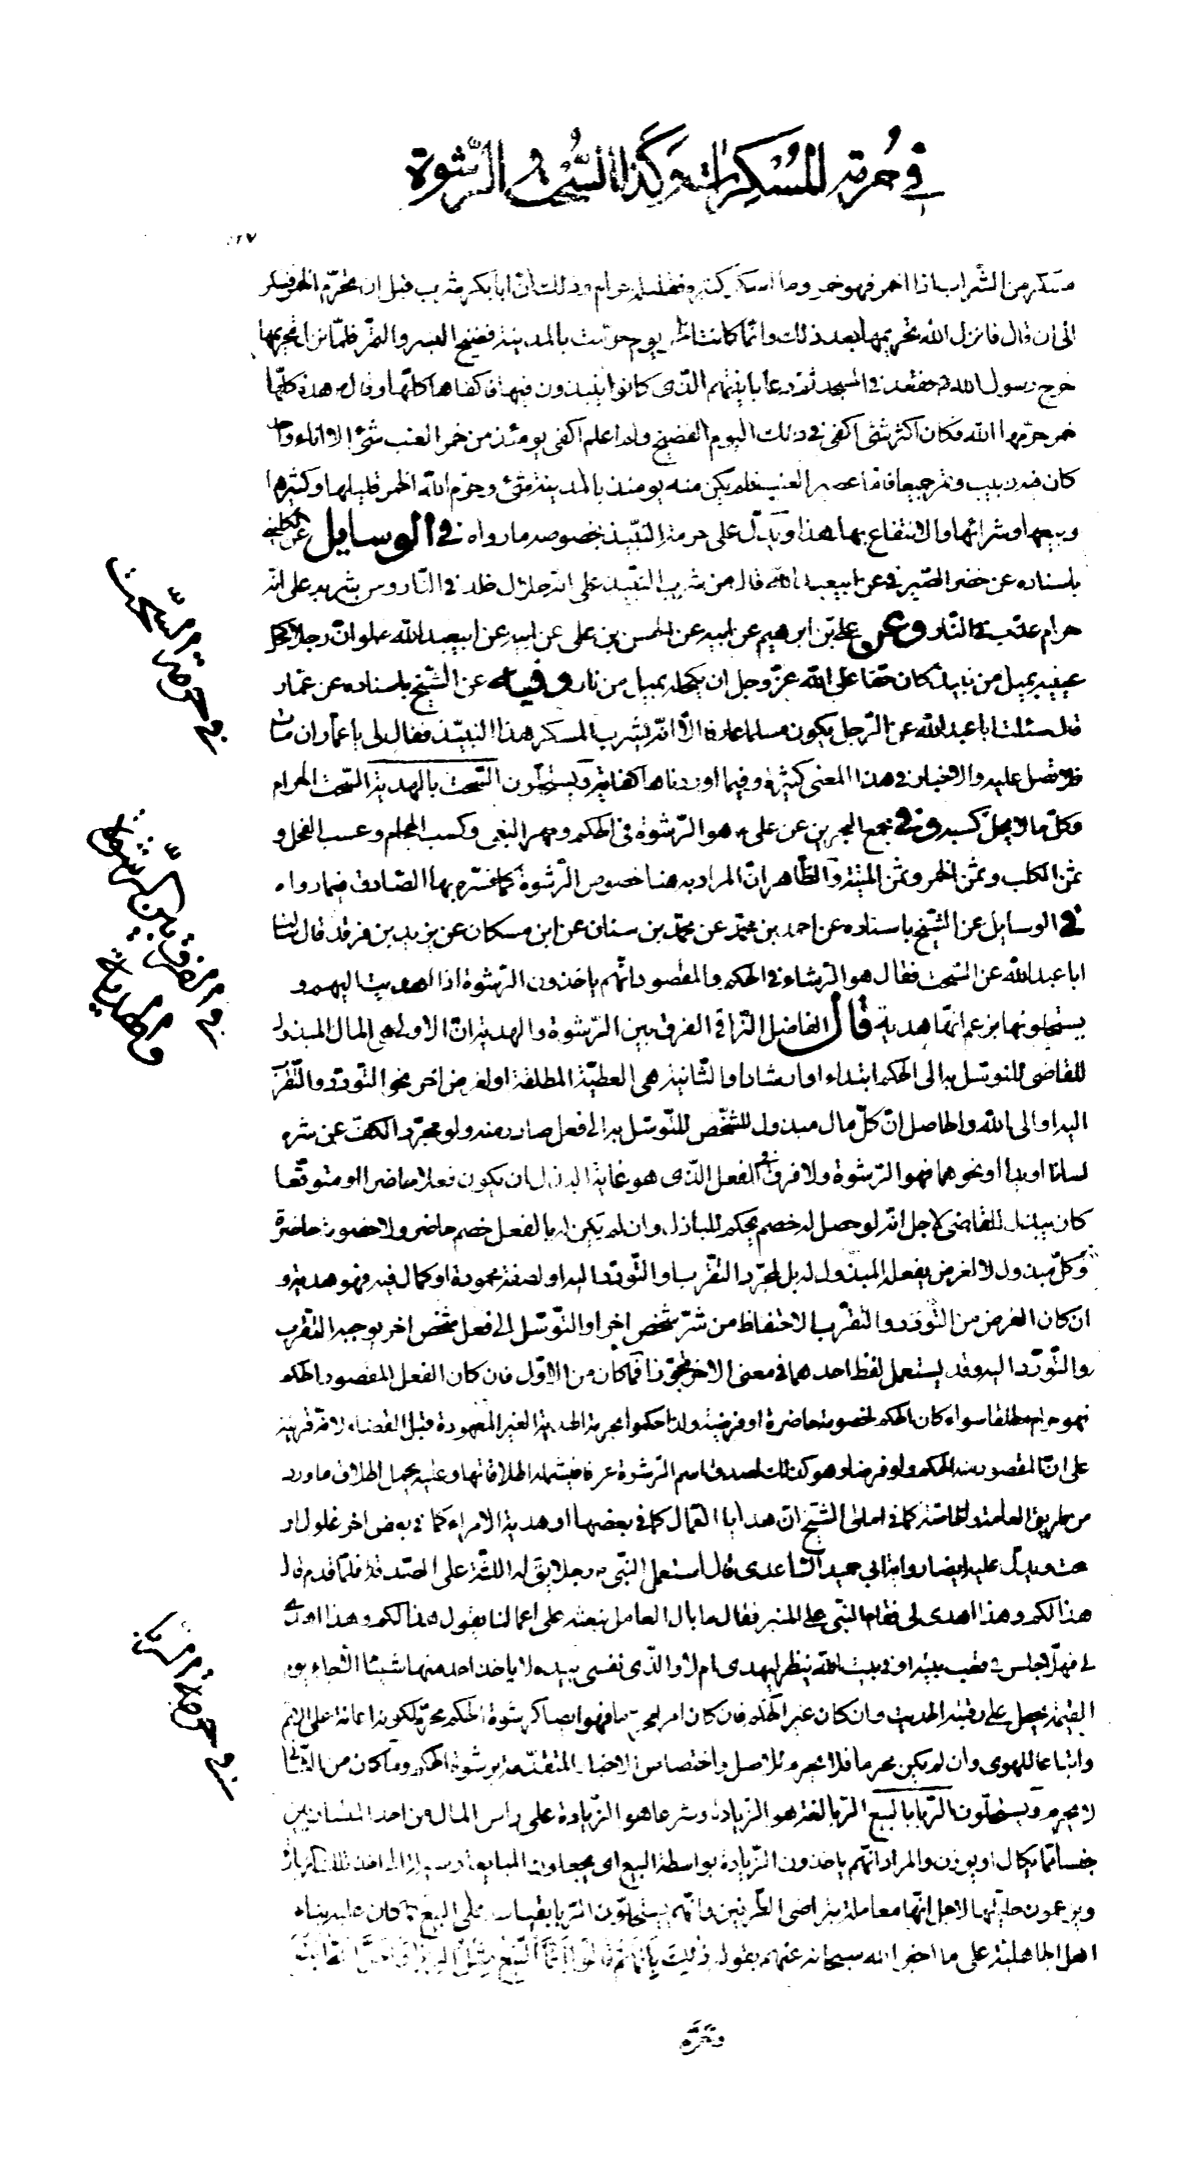 في حرمة المسكرات وكذا السحت والرّشوة
مسكر من الشّراب اذا اخمر فهو خمر وما اسكر كثيره فقليله حرام وذلك انّ ابا بكر شرب قبل ان تحرّم الخمر فسكر
الى ان قال فانزل الله تحريمها بعد ذلك وانّما كانت الخمر يوم حرّمت بالمدينة فضيخ البسر والتّمر فلمّا نزل تحريمها
خرج رسول الله ص فقعد في المسجد ثمّ دعا بانيتهم الّتى كانوا ينبذون فيها فاكفاها كلّها وقال هذه كلّها
خمر حرّمها الله فكان اكثر شئ اكفى في ذلك اليوم الفضيخ ولم اعلم اكفى يومئذ من خمر العنب شئ الا اناء واحد
كان فيه زبيب وتمر جميعا فامّا عصير العنب فلم يكن منه يومئذ بالمدينة شئ وحرّم الله الخمر قليلها وكثيرها
وبيعها وشرائها والانتفاع بها هذا ويدلّ على حرمة النّبيذ بخصوصه ما رواه في الوسايل عن الكلينى
باسناده عن خضر الصّيرفي عن ابيعبد الله قال من شرب النّبيذ على انّه حلال خلد في النّار ومن شربه على انّه
حرام عذّب في النّار وعن علىّ بن ابرهيم عن ابيه عن الحسن بن على عن ابيه عن ابيعبد الله ع لو انّ رجلا كحل
عينيه بميل من نبيذ كان حقّا على الله عزّ وجل ان يكحله بميل من نار وفيه عن الشّيخ باسناده عن عمّار
قال سئلت ابا عبد الله عن الرّجل يكون مسلما عارفا الّا انّه يشرب المسكر هذا النبيذ فقال لى يا عمّار ان مات
فلا تصل عليه والاخبار في هذا المعنى كثيرة وفيما اوردناها كفاية ويستحلّون السّحت بالهدية السّحت الحرام
وكلّ ما لا يحل كسبه وفي مجمع البحرين عن على ع هو الرّشوة في الحكم ومهر البغى وكسب الحجام وعسب الفحل و
ثمن الكلب وثمن الخمر وثمن الميتة والظّاهر انّ المراد به هنا خصوص الرّشوة كما فسّره بها الصّادق فيما رواه
في الوسايل عن الشّيخ باسناده عن احمد بن محمّد عن محمّد بن سنان عن ابن مسكان عن يزيد بن فرقد قال سالت
ابا عبد الله عن السّحت فقال هو الرّشاء في الحكم والمقصود انّهم ياخذون الرّشوة اذا اهديت اليهم و
يستحلونها بزعم انّها هدية قال الفاضل النّراقى الفرق بين الرّشوة والهدية انّ الاولى هى المال المبذول
للقاضى للتوسّل به الى الحكم ابتداء او ارشادا والثانية هى العطيّة المطلقة او لغرض اخر نحو التودّد والتّقرّب
اليه او الى الله والحاصل انّ كلّ مال مبذول للشّخص للتّوسّل به الى فعل صادر منه ولو مجرّد الكفّ عن شره
لسانا او يدا او نحوهما فهو الرّشوة ولا فرق في الفعل الّذى هو غاية البذل ان يكون فعلا حاضرا او متوقّعا
كان يبذل للقاضى لاجل انّه لو حصل له خصم يحكم للباذل وان لم يكن له بالفعل خصم حاضر ولا خصومة حاضرة
وكلّ مبذول لا لغرض يفعله المبذول له بل لمجرّد التقرّب او التّودّد اليه او لصفة محمودة او كمال فيه فهو هدية و
ان كان الغرض من التّودّد والتقرّب الاحتفاظ من شرّ شخص اخر او التوسّل الى فعل شخص اخر يوجبه التقرب
والتّودّد اليه وقد يستعمل لفظ احدهما في معنى الاخر تجوّزا فما كان من الاوّل فان كان الفعل المقصود الحكم
فهو حرام مطلقا سواء كان الحكم لخصومة حاضرة او فرضية ولذا حكموا بحرمة الهدية الغير المعهودة قبل القضاء لانّه قرينة
على انّ المقصود منه الحكم ولو فرضا وهو كذلك لصدق اسم الرّشوة عرفا فيشمله اطلاقاتها وعليه يحمل اطلاق ما ورد
من طريق العامة والخاصّة كما في امالى الشّيخ انّ هدايا العمّال كما في بعضها او هدية الامراء كما في بعض اخر غلول او
سحت ويدلّ عليه ايضا رواية ابى حميد السّاعدى قال استعمل النّبى ص رجلا يق له اللّتبة على الصّدقة فلمّا قدم قال
هذا لكم وهذا اهدى لى فقام النّبى على المنبر فقال ما بال العامل نبعثه على اعمالنا يقول هذا لكم وهذا اهدى
لى فهلّا جلس في قعب بيته او في بيت امّه ينظر ايهدى ام لا والّذى نفسى بيده لا ياخذ احد منها شيئا الّا جاء يوم
القيمة يحمل على رقبته الحديث وان كان غير الحكم فان كان امرا محرّما فهو ايضا كرشوة الحكم محرّم لكونه اعانة على الاثم
واتباعا للهوى وان لم يكن محرما فلا يحرم للاصل واختصاص الاخبار المتقدّمة برشوة الحكم وما كان من الثّانى
لا يحرم ويستحلّون الرّبا بالبيع الرّبا لغة هو الزّيادة وشرعا هو الزّيادة على راس المال من احد المتساويين
جنسا ممّا يكال او يوزن والمراد انّهم ياخذون الزّيادة بواسطة البيع اى يجعلون المبايعة وسيلة الى اخذ تلك الزّيادة
ويزعمون حلّيتها لاجل انّها معاملة بتراضى الطّرفين وانّهم يستحلّون الرّبا بقياسه على البيع كما كان عليه بناء
اهل الجاهلية على ما اخبر الله سبحانه عنهم بقوله ذلِكَ بِاَنَّهُمْ قالُوا اِنَّمَا الْبَيْعُ مِثْلُ الرِّبوا
وَحَرَّمَ
في حرمة السّحت
في الفرق بين الرّشوة
والهدية
في حرمة الربا